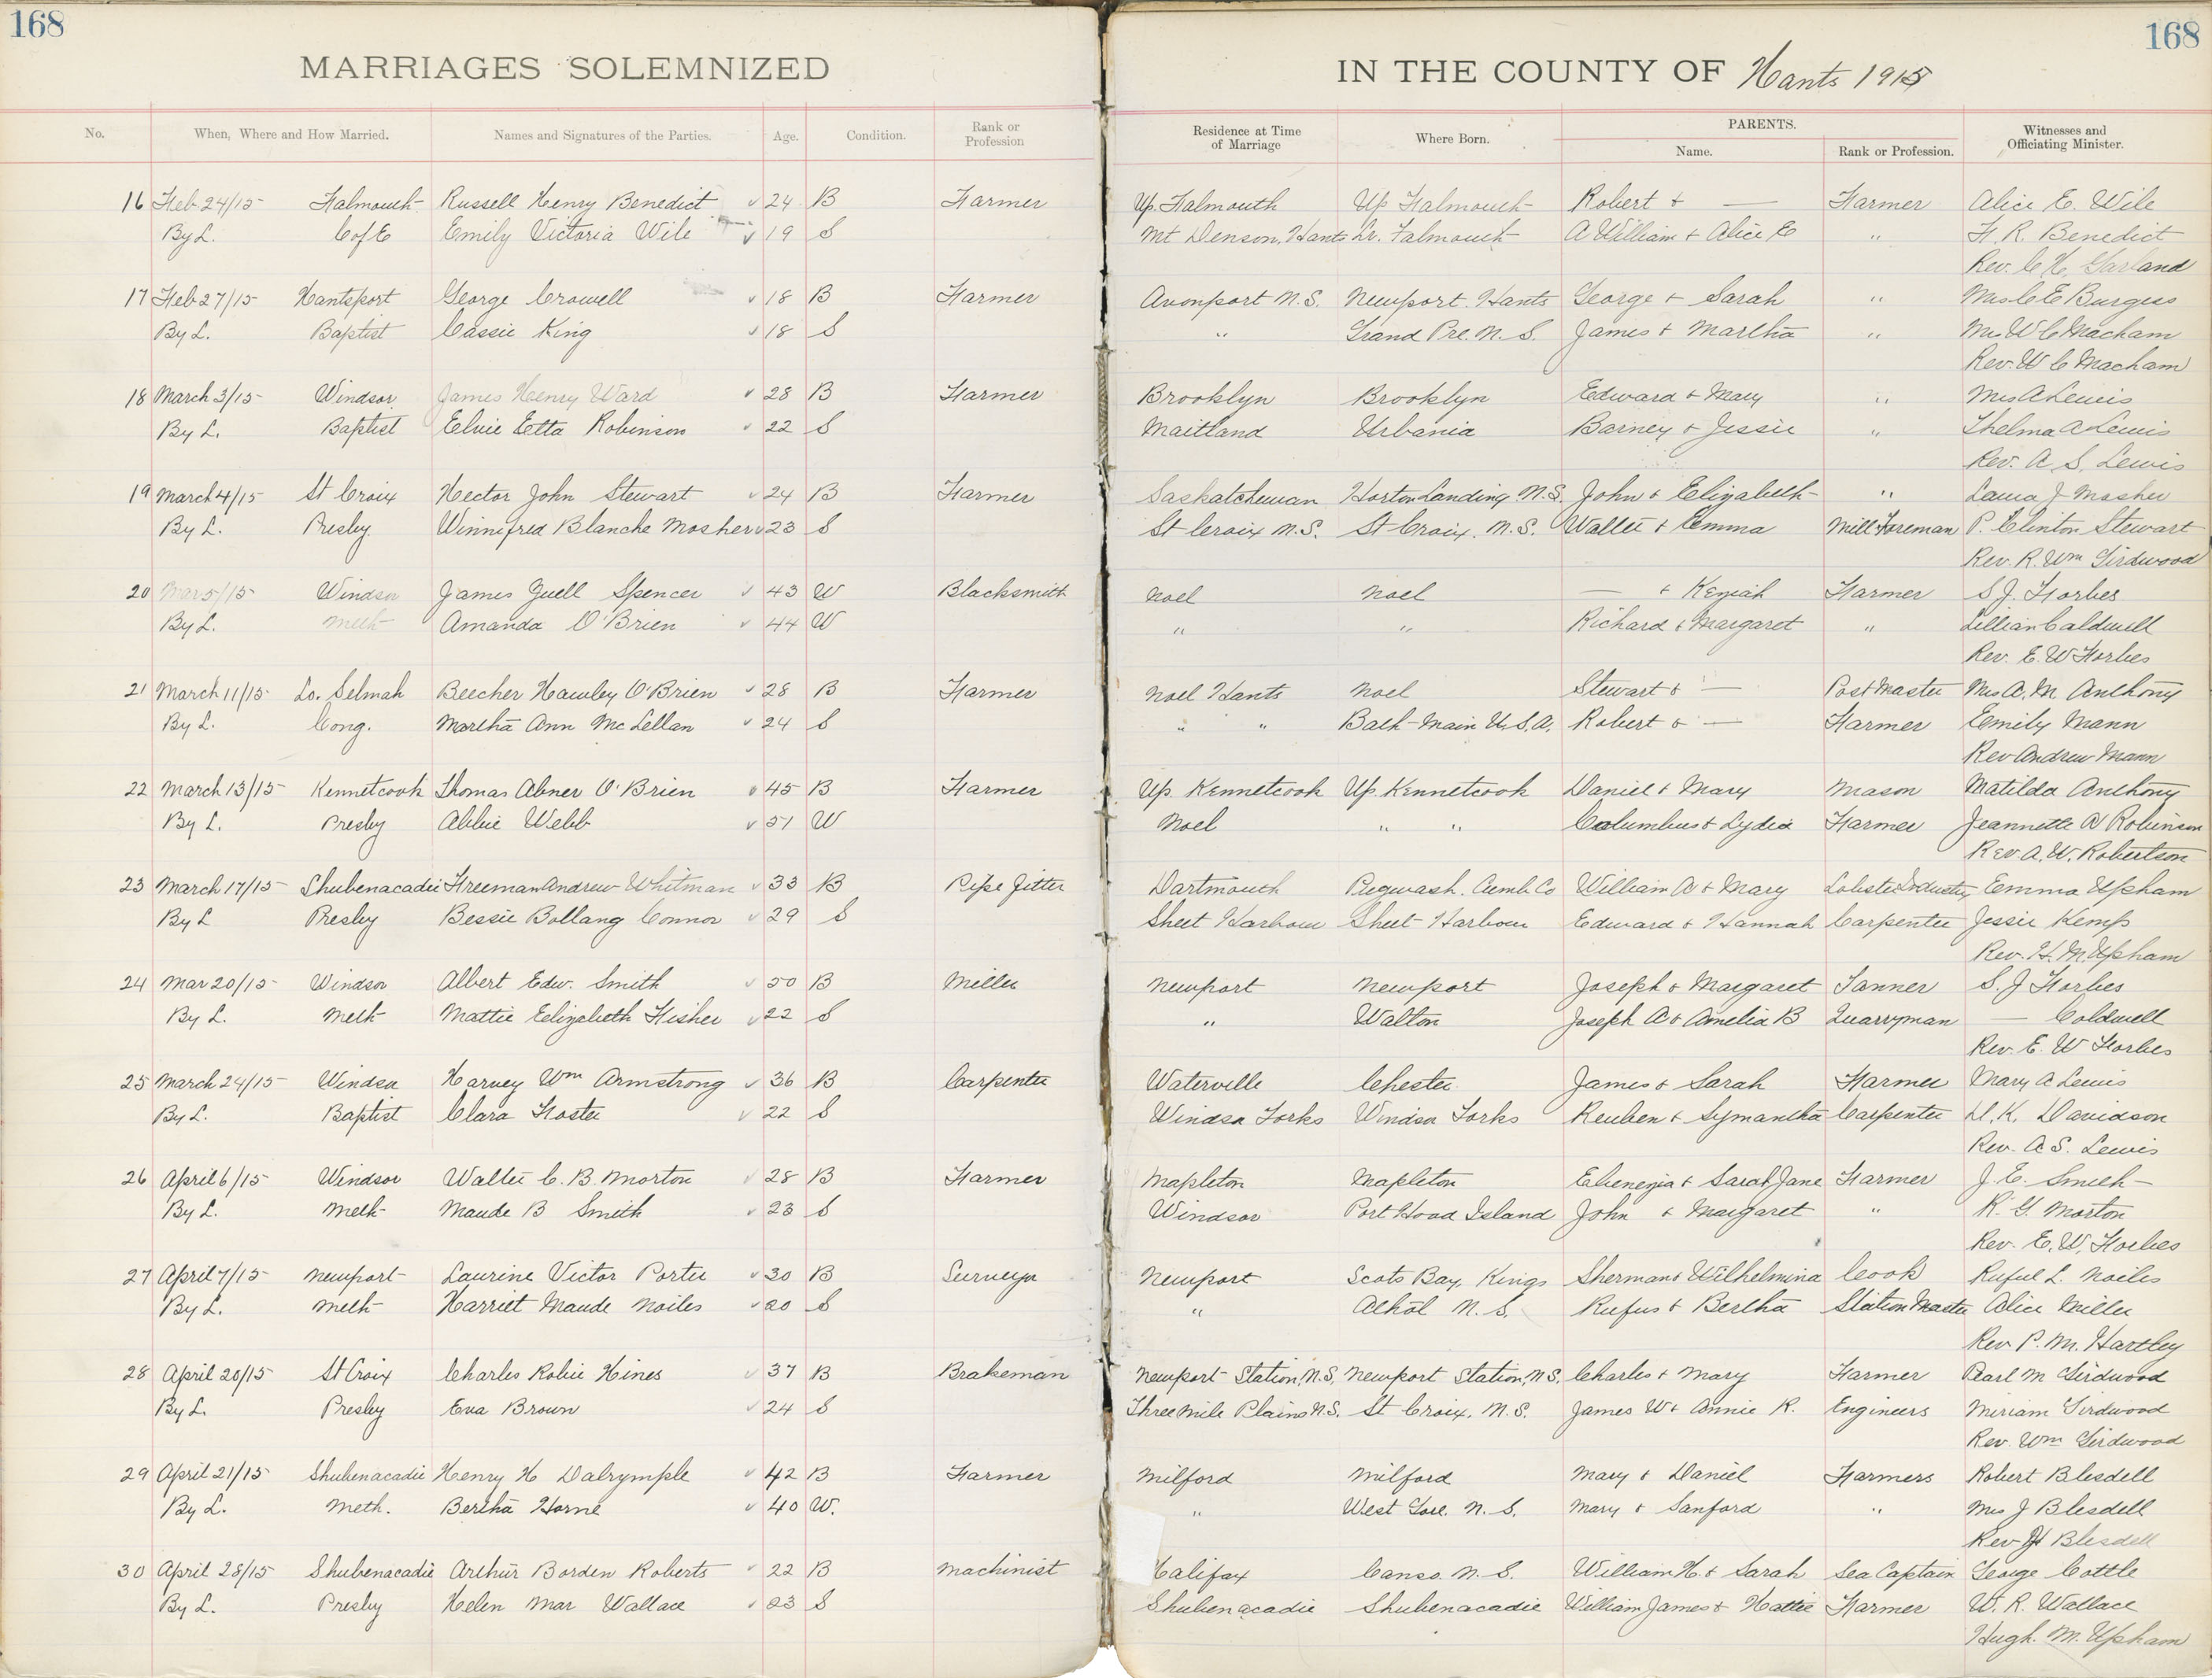 168 168
MARRIAGES SOLEMNIZED IN THE COUNTY OF Hants 1915
No. When, Where and How Married. Names and Signatures of the Parties. Age. Condition. Rank or Profession Residence at Time of Marriage Where Born. PARENTS. Name. Rank or Profession. Witnesses and Officiating Minister.
16 Feb 24/15 Falmouth Russell Henry Benedict 24 B Farmer Up. Falmouth Up Falmouth Robert & — Farmer Alice E. Wile
By L. C of E Emily Victoria Wile 19 S Mt Denson, Hants Lr. Falmouth A William & Alice E " F. R. Benedict
Rev. C H. Garland
17 Feb 27/15 Hantsport George Crowell 18 B Farmer Avonport N.S. Newport. Hants George & Sarah " Mrs C E Burgess
By L. Baptist Cassie King 18 S " Grand Pre. N. S. James & Martha " Mrs W C Macham
Rev. W C Macham
18 March 3/15 Windsor James Henry Ward 28 B Farmer Brooklyn Brooklyn Edward & Mary " Mrs A Lewis
By L. Baptist Elvie Etta Robinson 22 S Maitland Urbania Barney & Jessie " Thelma A Lewis
Rev. A. S. Lewis
19 March 4/15 St Croix Hector John Stewart 24 B Farmer Saskatchewan Horton Landing N.S. John & Elizabeth " Laura J Mosher
By L. Presby. Winnifred Blanche Mosher 23 S St Croix N.S. St Croix. N.S. Walter & Emma Mill Foreman P. Clinton Stewart
Rev. R. Wm Girdwood
20 Mar 5/15 Windsor James Yuell Spencer 43 W Blacksmith Noel Noel — & Keziah Farmer S J. Forbes
By L. Meth Amanda O'Brien 44 W " " Richard & Margaret " Lillian Caldwell
Rev. E. W Forbes
21 March 11/15 Lo. Selmah Beecher Hawley O'Brien 28 B Farmer Noel Hants Noel Stewart & — Post Master Mrs A. M. Anthony
By L. Cong. Martha Ann McLellan 24 S " " Bath Main U.S.A. Robert & — Farmer Emily Mann
Rev Andrew Mann
22 March 13/15 Kennetcook Thomas Abner O'Brien 45 B Farmer Up. Kennetcook Up. Kennetcook Daniel & Mary Mason Matilda Anthony
By L. Presby Abbie Webb 51 W Noel " " Columbus & Lydia Farmer Jeannette A Robinson
Rev. A. W. Robertson
23 March 17/15 Shubenacadie Freeman Andrew Whitman 33 B Pipe Fitter Dartmouth Pugwash. Cumb. Co William A & Mary Lobster Industry Emma Upham
By L Presby Bessie Bollang Connor 29 S Sheet Harbour Sheet Harbour Edward & Hannah Carpenter Jessie Kemp
Rev. H. M. Upham
24 Mar 20/15 Windsor Albert Edw. Smith 50 B Miller Newport Newport Joseph & Margaret Tanner S. J Forbes
By L. Meth Mattie Elizabeth Fisher 22 S " Walton Joseph A & Amelia B Quarryman — Coldwell
Rev. E. W Forbes
25 March 24/15 Windsor Harvey Wm Armstrong 36 B Carpenter Waterville Chester James & Sarah Farmer Mary A Lewis
By L. Baptist Clara Foster 22 S Windsor Forks Windsor Forks Reuben & Symantha Carpenter D. K. Davidson
Rev. A S. Lewis
26 April 6/15 Windsor Walter C. B. Morton 28 B Farmer Mapleton Mapleton Ebenezia & Sarah Jane Farmer J. E. Smith
By L. Meth Maude B Smith 23 S Windsor Port Hood Island John & Margaret " R. G. Morton
Rev. E. W. Forbes
27 April 7/15 Newport Laurine Victor Porter 30 B Surveyor Newport Scots Bay, Kings Sherman & Wilhelmina Cook Ruful L. Noiles
By L. Meth Harriet Maude Noiles 20 S " Athol N. S. Rufus & Bertha Station Master Alice Miller
Rev P. M. Hartley
28 April 20/15 St Croix Charles Robie Hines 37 B Brakeman Newport Station, N.S. Newport Station, N S. Charles & Mary Farmer Pearl M Girdwood
By L. Presby Eva Brown 24 S Three Mile Plains N.S. St Croix. N. S. James W & Annie R. Engineers Miriam Girdwood
Rev. Wm Girdwood
29 April 21/15 Shubenacadie Henry H Dalrymple 42 B Farmer Milford Milford Mary & Daniel Farmers Robert Blesdell
By L. Meth. Bertha Horne 40 W. " West Gore. N. S. Mary & Sanford " Mrs J Blesdell
Rev Blesdell
30 April 28/15 Shubenacadie Arthur Borden Roberts 22 B Machinist Halifax Canso. N. S. William H. & Sarah Sea Captain George Cottle
By L. Presby Helen Mar Wallace 23 S Shubenacadie Shubenacadie William James & Hattie Farmer W. R. Wallace
Hugh. M. Upham